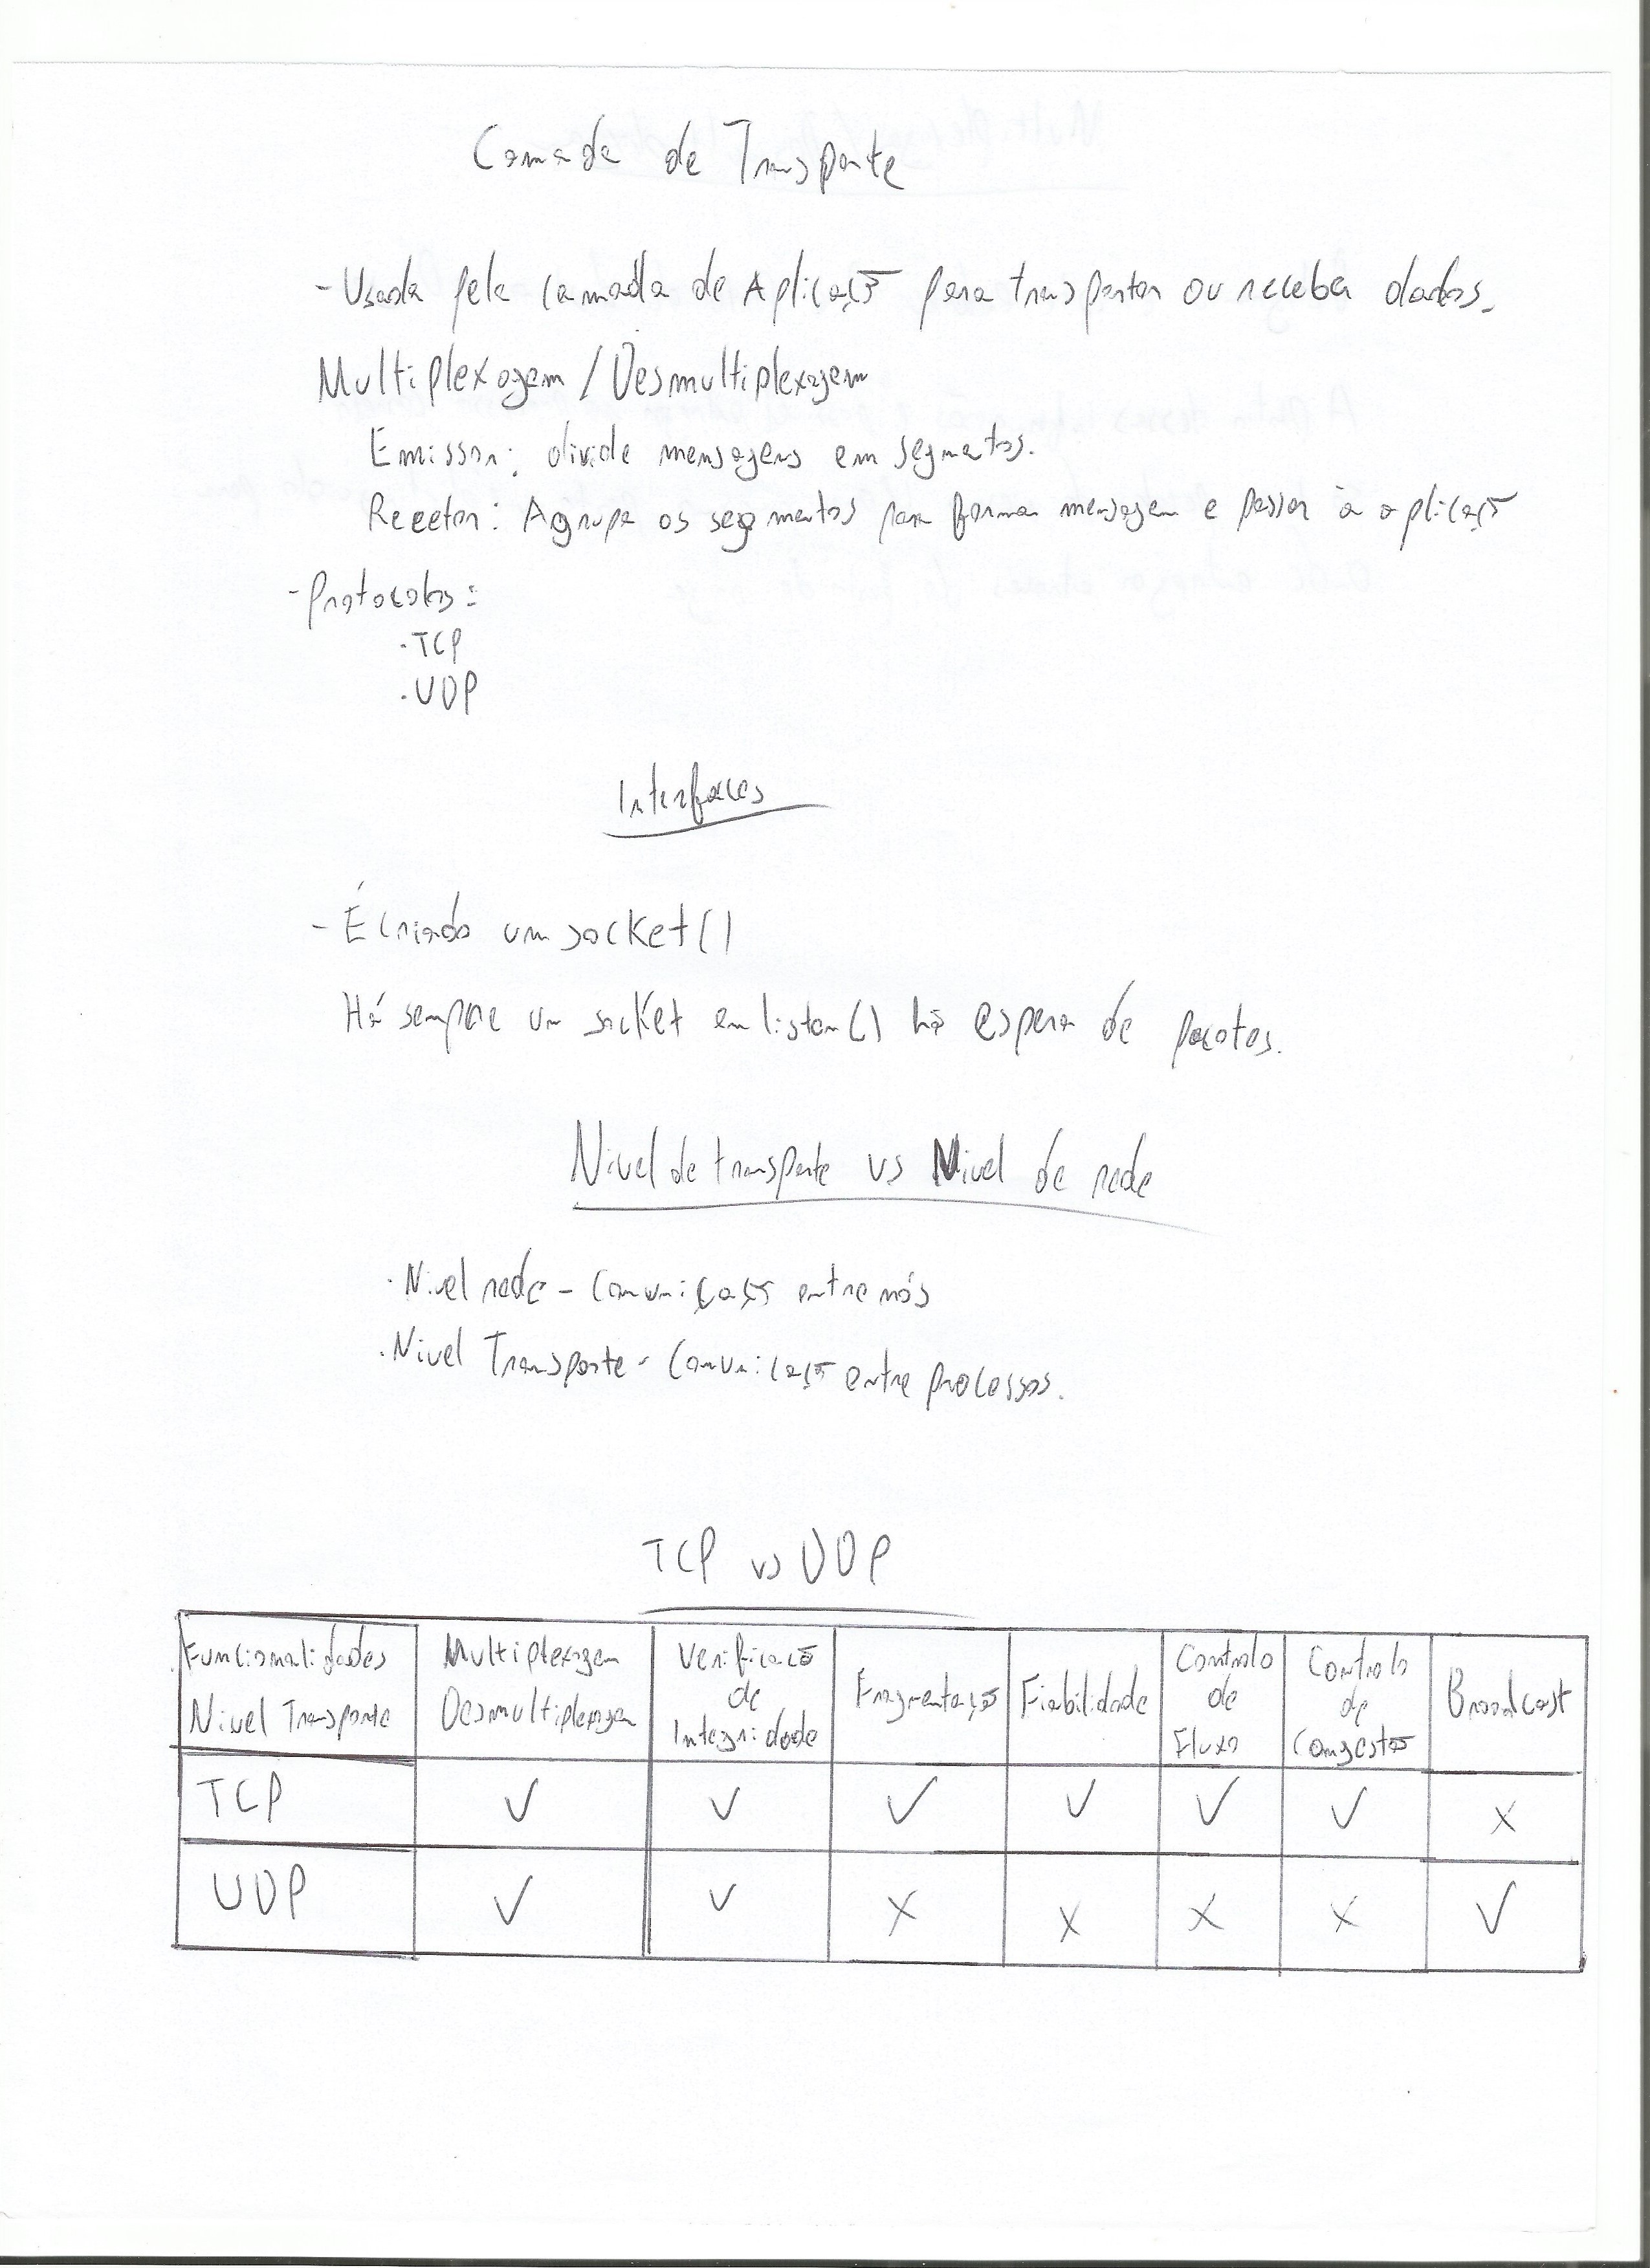 Camada de Transporte
- Usada pela camada de Aplicação para transportar ou receber dados.
Multiplexagem / Desmultiplexagem
Emissor: divide mensagens em segmentos.
Recetor: Agrupa os segmentos para formar mensagem e passar à aplicação
- Protocolos:
. TCP
. UDP
Interfaces
- É criado um socket()
Há sempre um socket em listen() há espera de pacotes.
Nivel de transporte vs Nivel de rede
. Nivel rede - Comunicação entre nós
. Nivel Transporte - Comunicação entre processos.
TCP vs UDP
Funcionalidades Nivel Transporte | Multiplexagem Desmultiplexagem | Verificação de Integridade | Fragmentação | Fiabilidade | Controlo de Fluxo | Controlo de Congestão | Broadcast
TCP | ✓ | ✓ | ✓ | ✓ | ✓ | ✓ | x
UDP | ✓ | ✓ | x | x | x | x | ✓